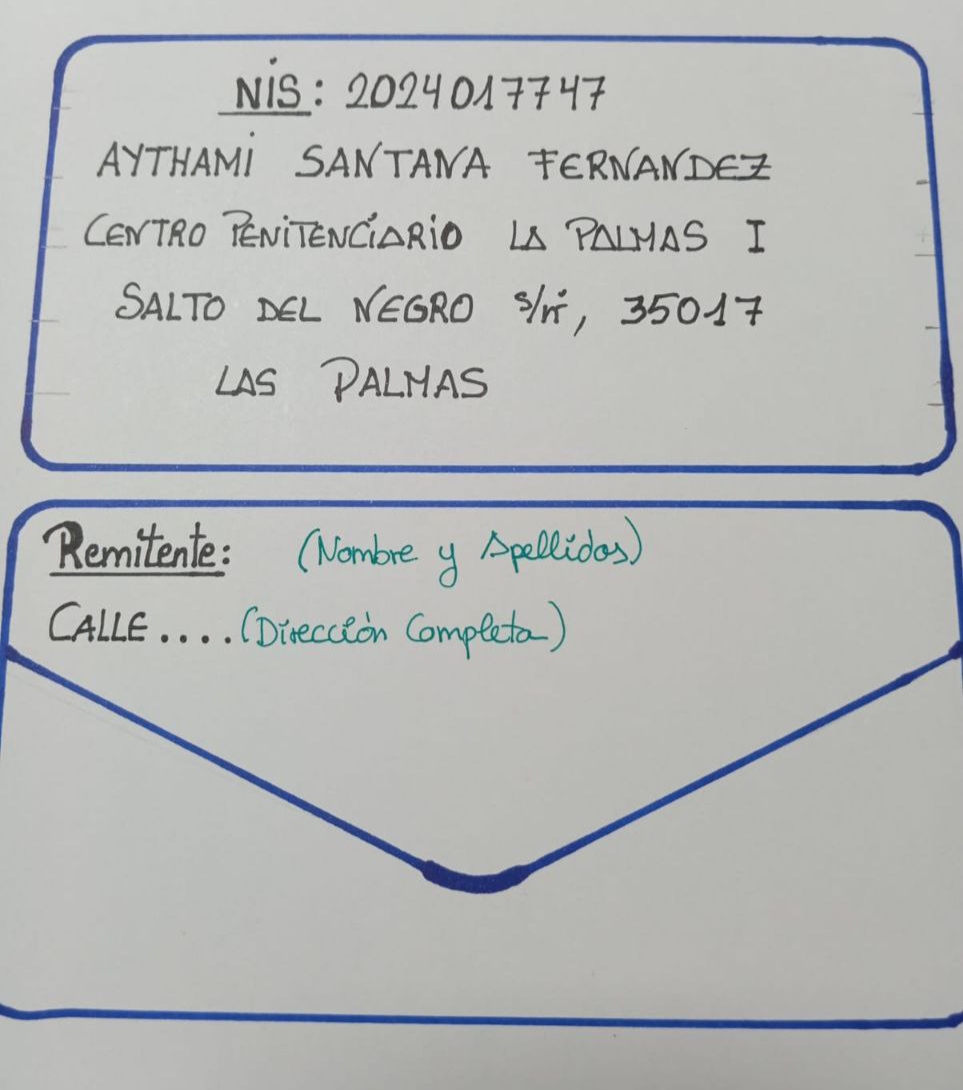 NIS: 2024017747
AYTHAMI SANTANA FERNANDEZ
CENTRO PENITENCIARIO LA PALMAS I
SALTO DEL NEGRO s/nº, 35017
LAS PALMAS
Remitente: (Nombre y Apellidos)
CALLE .... (Dirección Completa)